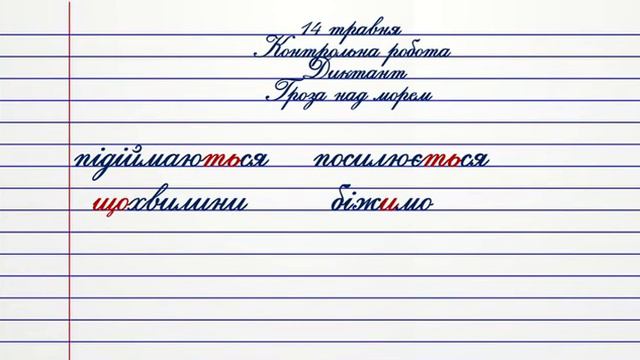 14 травня
Контрольна робота
Диктант
Гроза над морем
підіймаються посилюється
щохвилини біжимо